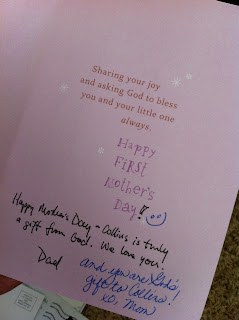 Sharing your joy
and asking God to bless
you and your little one
always.
Happy
First
Mother's
Day!
Happy Mother's Day - Collins is truly
a gift from God. We love you!
Dad
and you are God's
gift to Collins!
xo, Mom